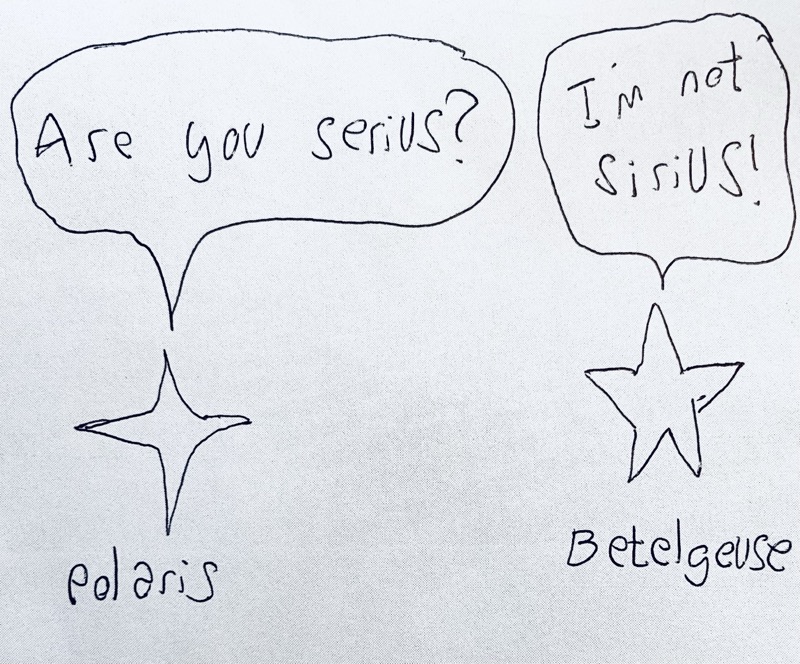 Are you serius?
I'm not
sirius!
polaris
Betelgeuse